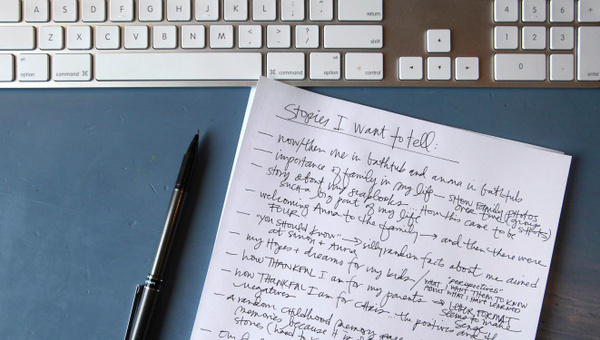 A S D F G H J K L return
Z X C V B N M shift
option command command option control
0 enter
Stories I want to tell:
– now/then me in bathtub and anna in bathtub
– importance of family in my life – show family photos over time (group shots)
– story about my scrapbooks – How this came to be such a big part of my life
– welcoming Anna to the family → and then there were FOUR
– "you should know" → silly random facts about me aimed at Simon + Anna
– my Hopes + dreams for my kids / "perspectives" WHAT I WANT THEM TO KNOW ABOUT WHAT I HAVE LEARNED
– how THANKFUL I am for my parents → LETTER FORMAT seems to make sense
– how THANKFUL I am for Chris... the positives and the negatives
– A random childhood memory
memories because it is
stories (hard to
– Our